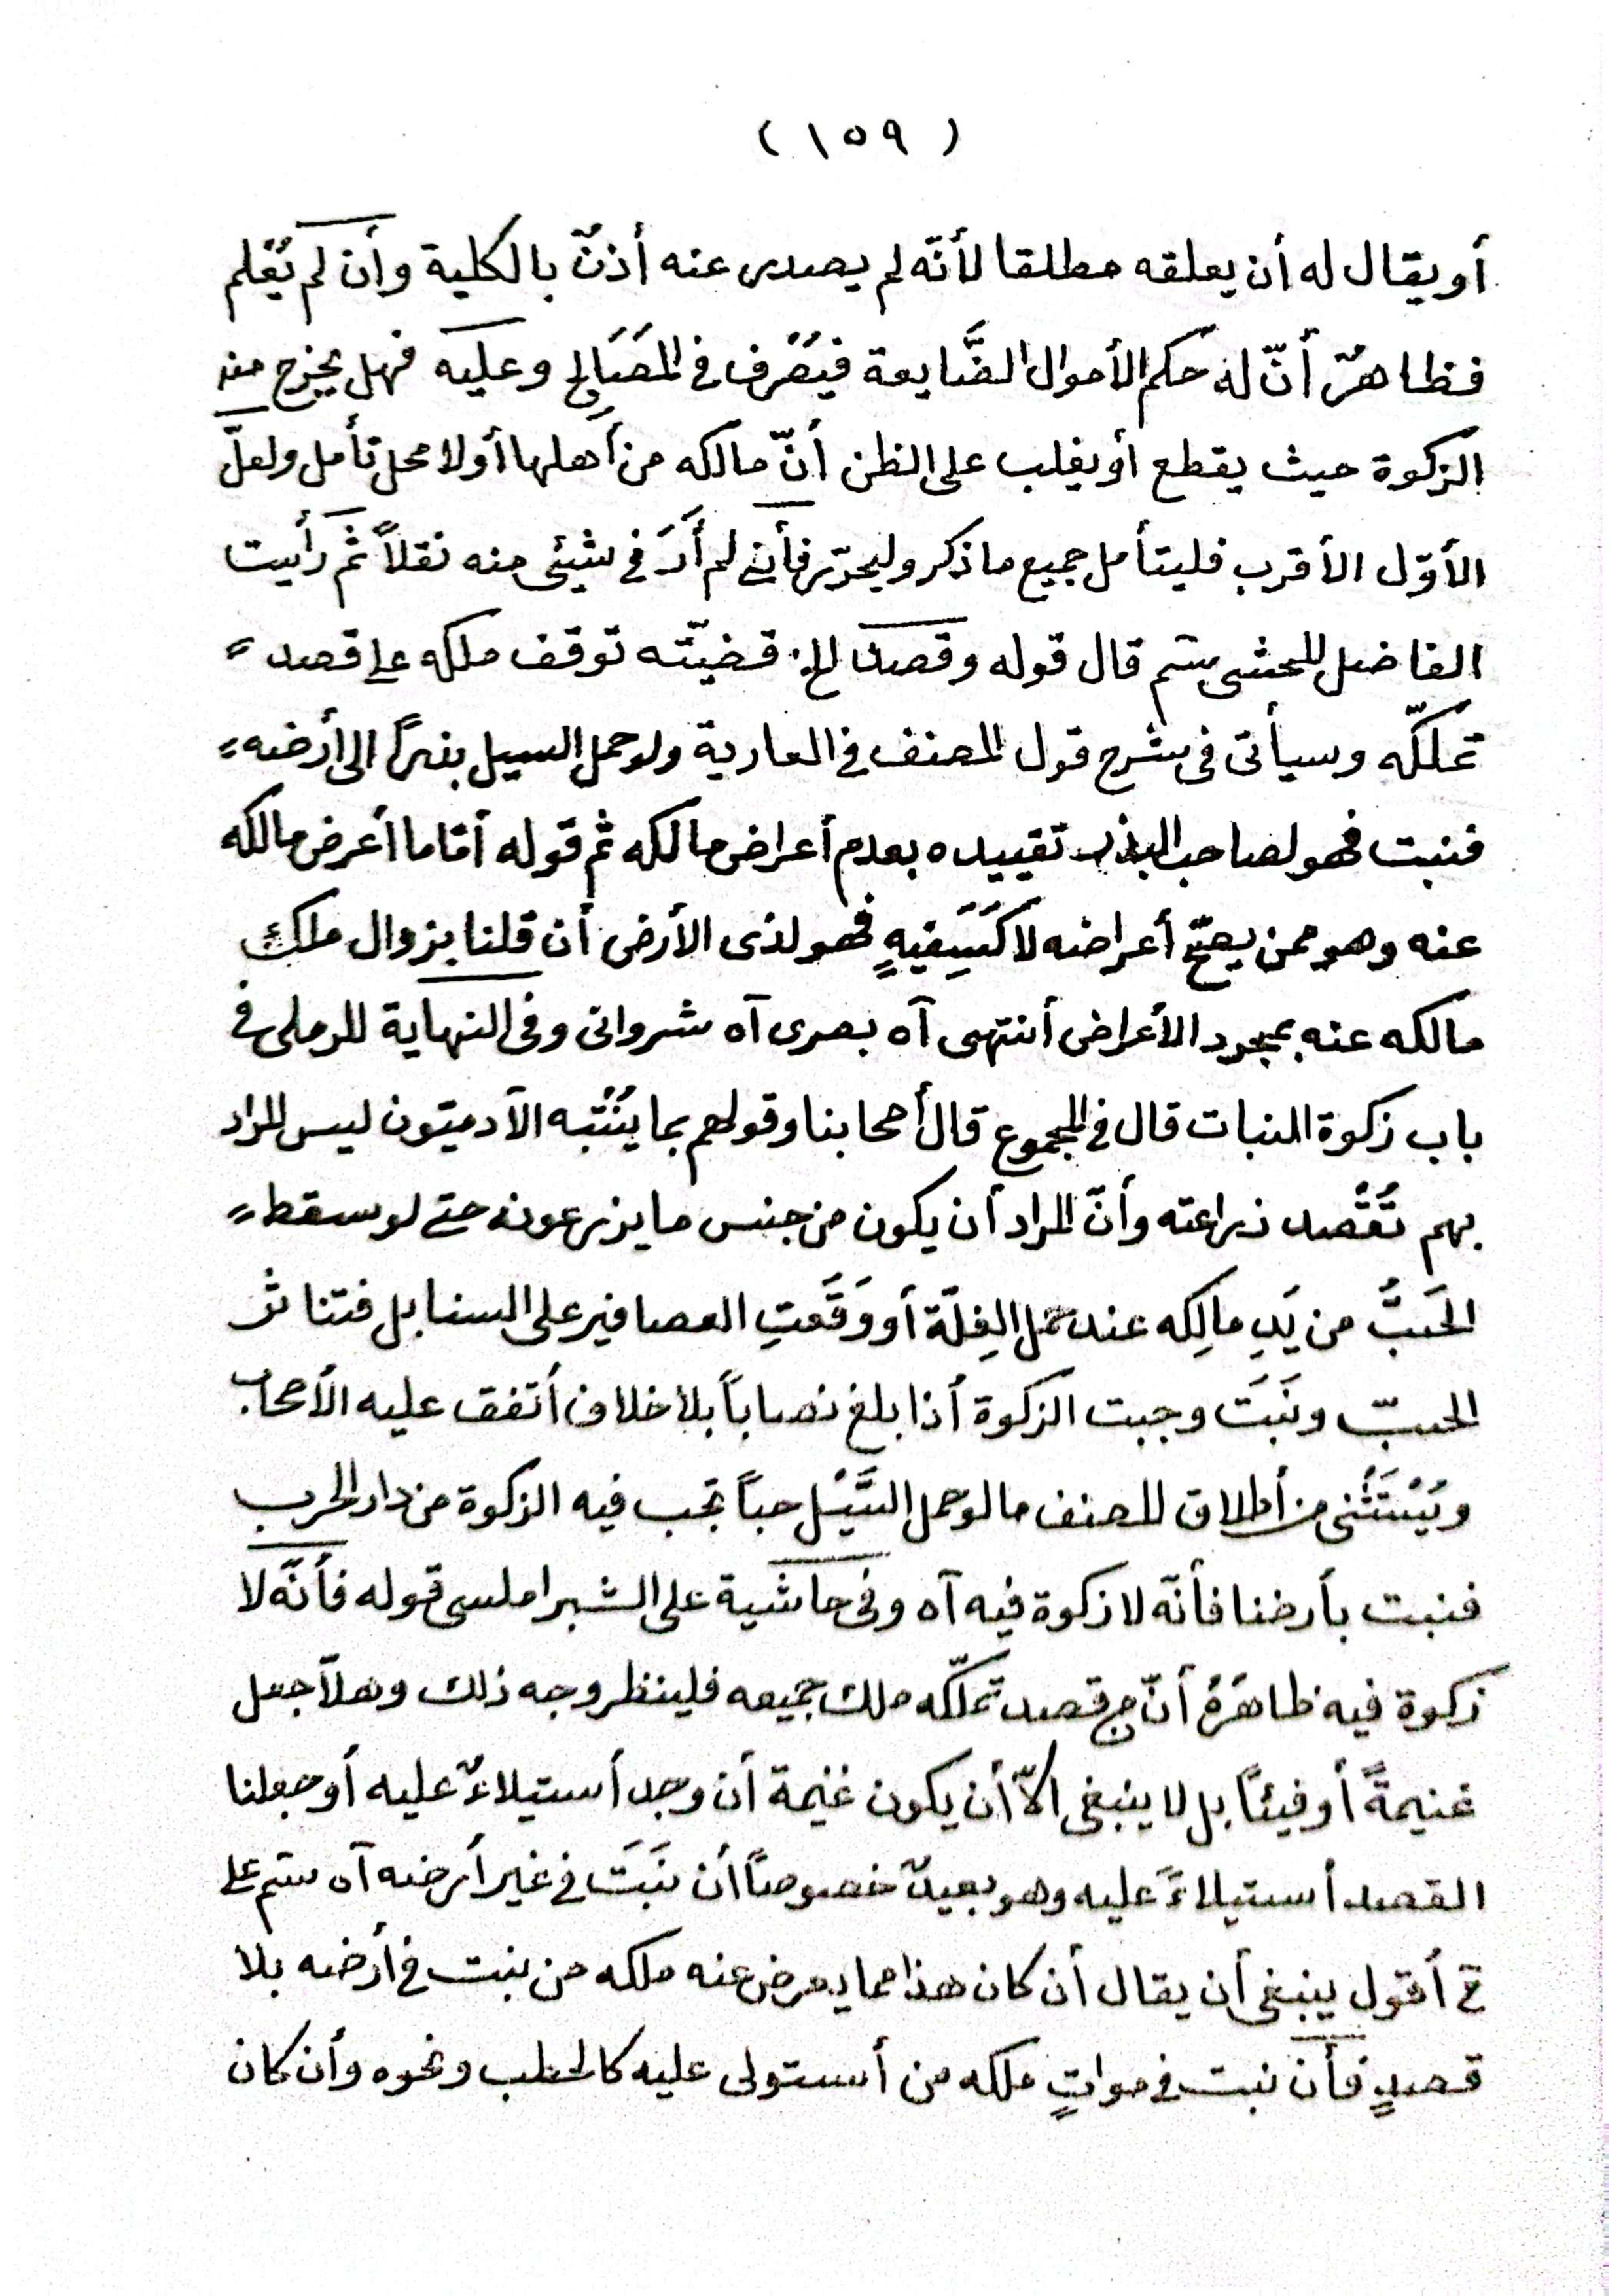 ( ١٥٩ )
أو يقال له أن يعلقه مطلقا لأنّه لم يصدر عنه أذنٌ بالكلية وأن لم يُعْلم
فظاهرٌ أنّ له حكم الأموال الضَّايعة فيَصْرف في المَصَالِح وعليه فهل يخرج منه
الزكوة حيث يقطع أو يغلب على الظن أنّ مالكه من أهلها أولا محل تأمل ولعلّ
الأوّل الأقرب فليتأمل جميع ما ذكر وليحرّر فأني لم أَرَ في شيئي منه نقلاً ثم رأيت
الفاضل المحشى سم قال قوله وقصد الخ. قضيّته توقف ملكه على قصد
تملّكه وسيأتى فى شرح قول المصنف في العارية ولو حمل السيل بذراً الى أرضه
فنبت فهو لصاحب البذر تقييده بعدم أعراض مالكه ثم قوله أمّا ما أعرض مالكه
عنه وهو ممن يصحّ أعراضه لا كَسَفِيهٍ فهو لذى الأرض أن قلنا بزوال ملك
مالكه عنه بمجرد الأعراض أنتهى آه بصرى آه شروانى وفى النهاية للرملى في
باب زكوة النبات قال في المجموع قال أصحابنا وقولهم بما يُنْتبه الآدميّون ليس المراد
بهم تُقْصد زراعته وأنّ المراد أن يكون من جنس ما يزرعونه حتى لو سقط
الحَبَّ من يَدِ مالِكِه عند حمل الغِلّة أو وَقَعَتِ العصافير على السنابل فتناثر
الحبّ ونَبَتَ وجبت الزكوة أذا بلغ نصاباً بلا خلاف أتفق عليه الأصحاب
ويُسْتَثْنى من أطلاق المصنف ما لو حمل السَّيْل حباً تجب فيه الزكوة من دار الحرب
فنبت بأرضنا فأنّه لا زكوة فيه آه وفى حاشية على الشبراملسى قوله فأنّه لا
زكوة فيه ظاهرُهُ أنّ من قصد تملّكه ملك جميعه فلينظر وجه ذلك وهلاّ جعل
غنيمةً أو فيئاً بل لا ينبغى الاّ أن يكون غنيمة أن وجد أستيلاءٌ عليه أو جعلنا
القصد أستيلاءً عليه وهو بعيدٌ خصوصاً أن نَبَتَ في غير أرضه آه سم على
أقول ينبغى أن يقال أن كان هذا مما يعرض عنه ملكه من نبت في أرضه بلا
قصدٍ فأن نبت في مواتٍ ملكه من أستولى عليه كالحطب ونحوه وأن كان